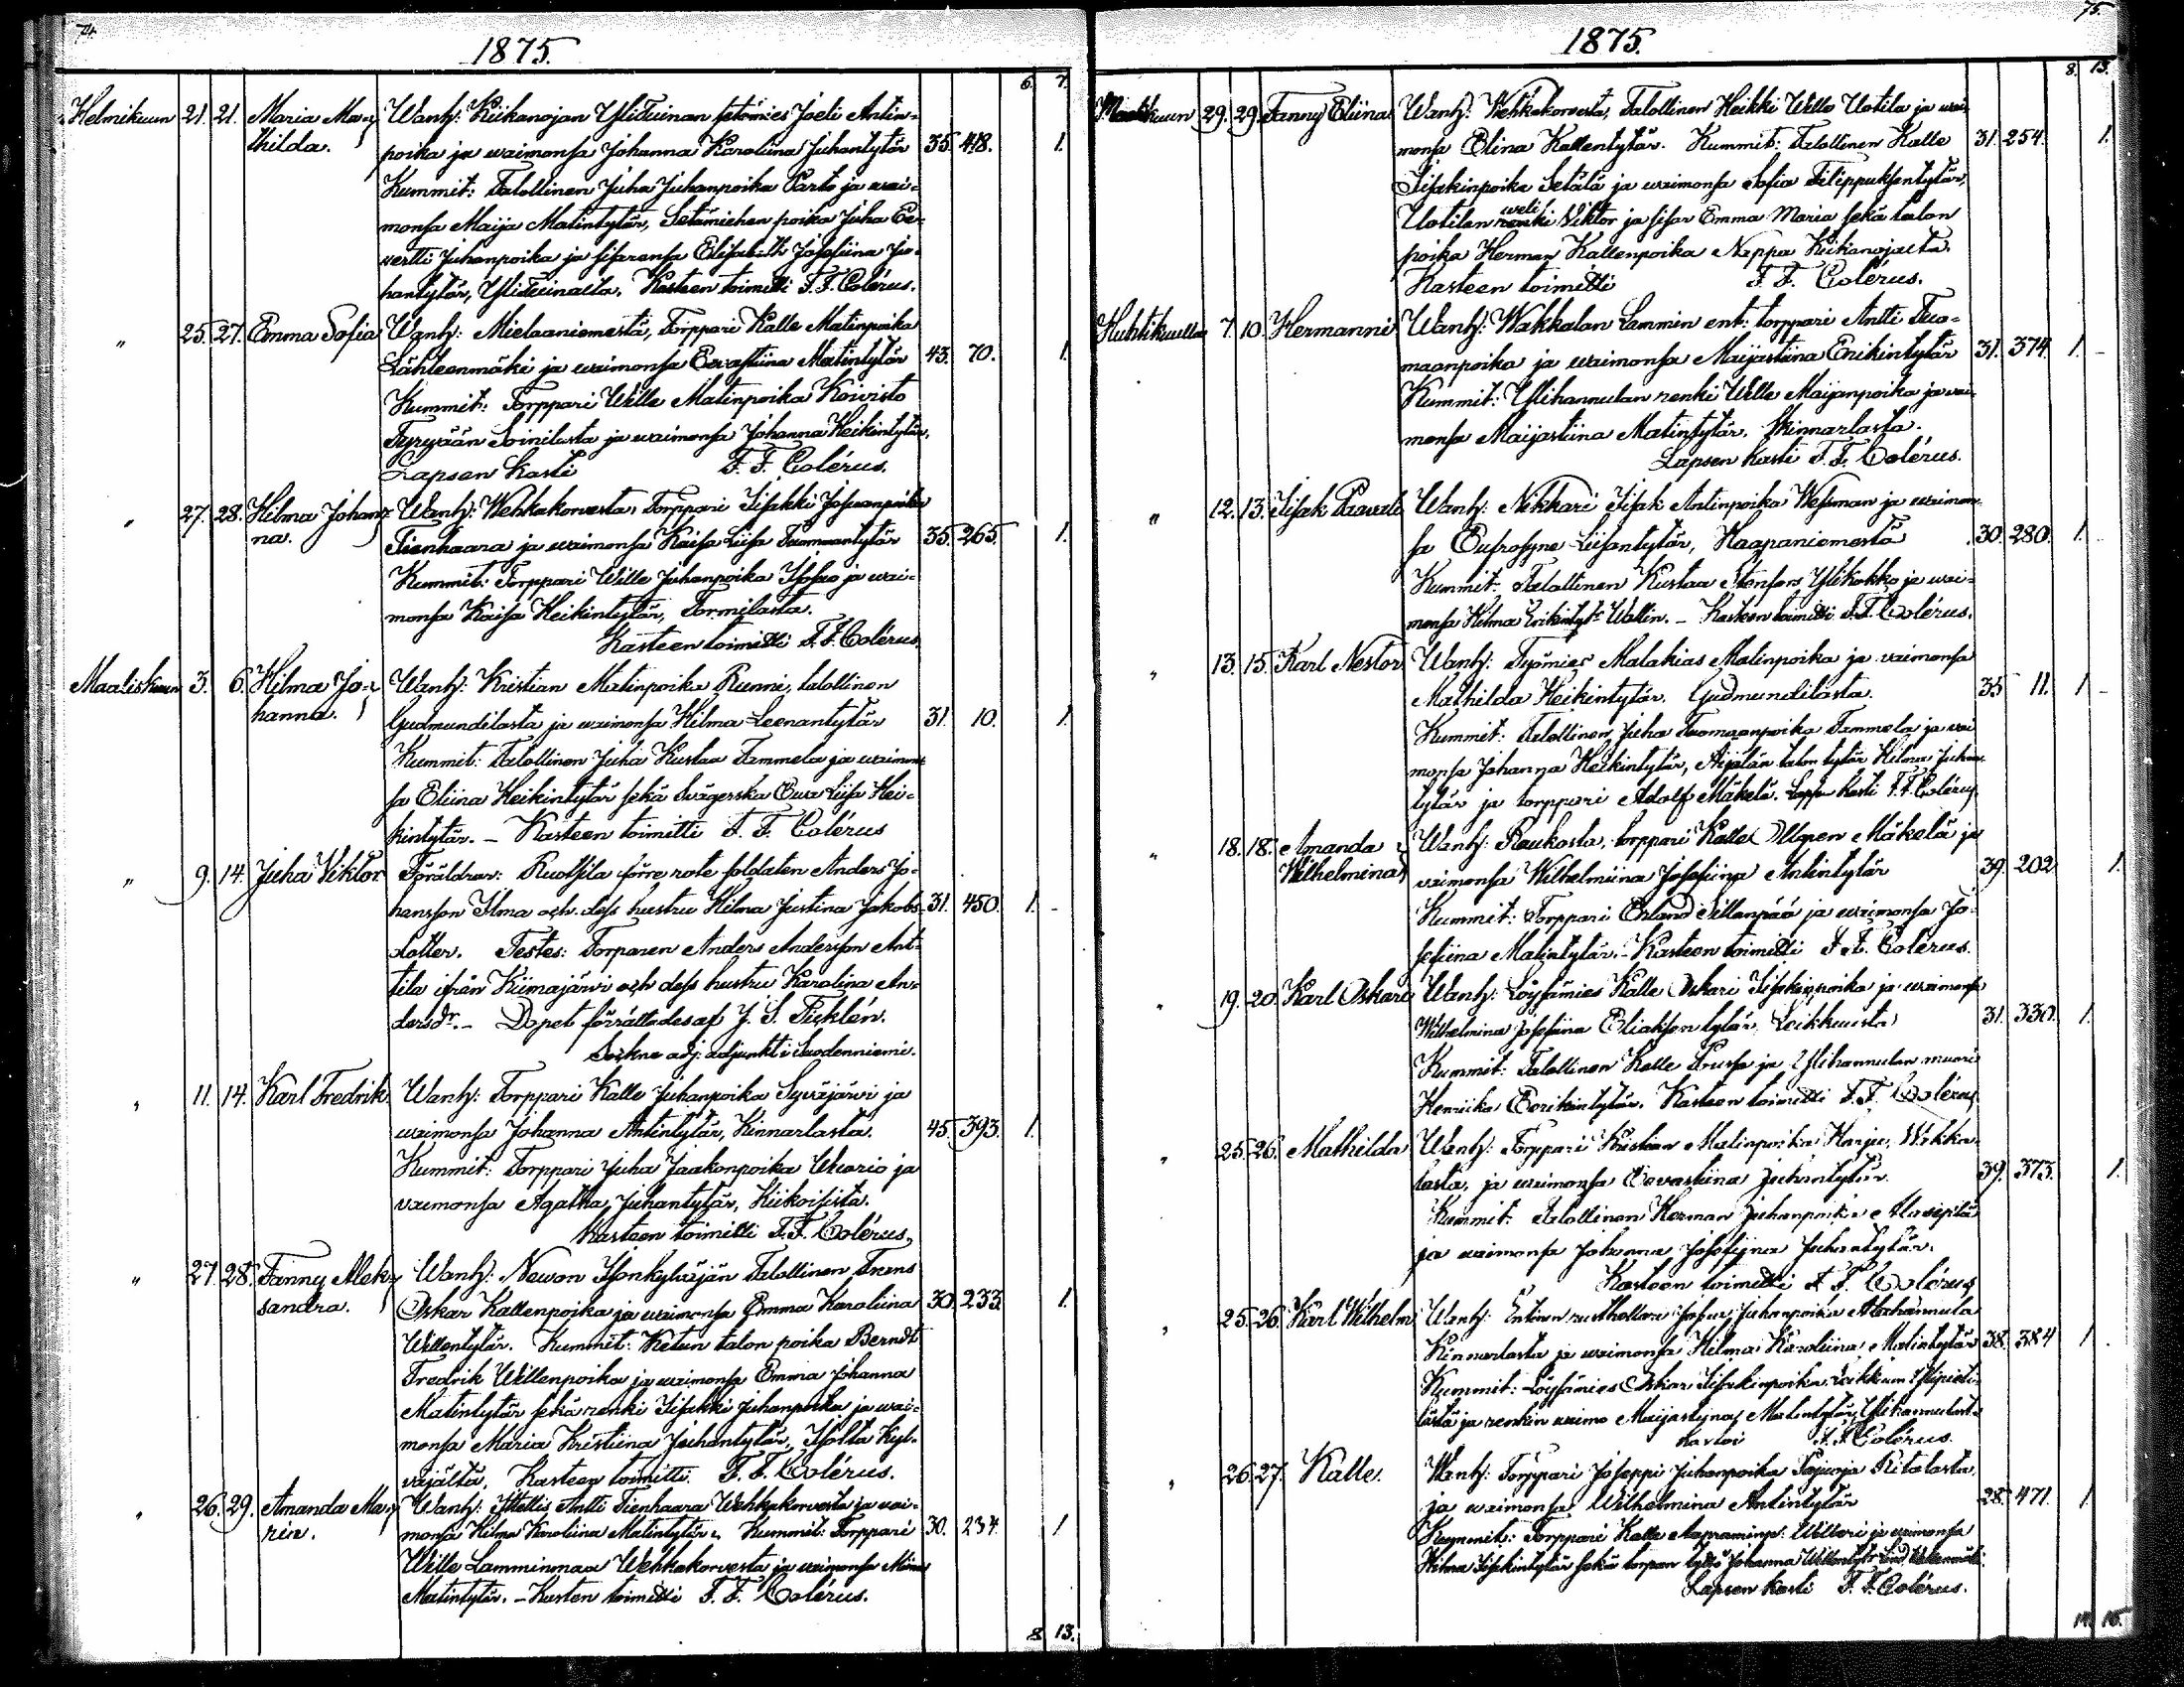 74.
1875.
6. 7.
Helmikuun 21. 21. Maria Ma- Wanh: Kiikanojan Ylituinan setämies Joeli Antin-
thilda. poika ja waimonsa Johanna Karoliina Juhantytär 35. 418. 1.
Kummit: Talollinen Juha Juhanpoika Parto ja wai-
monsa Maija Matintytär, Setämiehen poika Juha Ee-
vertti Juhanpoika ja sisarensa Elisabeth Josefiina Ju-
hantytär, Ylituinalta. Kasteen toimitti F. F. Colérus.
" 25. 27. Emma Sofia Wanh: Mielaaniemestä, Torppari Kalle Matinpoika
Lähteenmäki ja waimonsa Eevastiina Matintytär 43. 70. 1.
Kummit: Torppari Wille Matinpoika Koivisto
Tyryään Soinilasta ja waimonsa Johanna Heikintytär.
Lapsen kasti F. F. Colérus.
" 27. 28. Hilma Johan- Wanh: Wehkakorvesta, Torppari Iisakki Josuanpoika
na. Tienhaara ja waimonsa Kaisa Liisa Tuomaantytär 35. 265. 1.
Kummit: Torppari Wille Juhanpoika Isosuo ja wai-
monsa Kaisa Heikintytär, Tormilasta.
Kasteen toimitti F. F. Colérus.
Maaliskuun 3. 6. Hilma Jo- Wanh: Kristian Matinpoika Runni, talollinen
hanna. Gudmundilasta ja waimonsa Hilma Leenantytär 31. 10. 1.
Kummit: Talollinen Juha Kustaa Tammela ja waimon-
sa Eliina Heikintytär sekä Svägerska Eeva Liisa Hei-
kintytär. – Kasteen toimitti F. F. Colérus
" 9. 14. Juha Viktor. Föräldrar: Ruotsila förre rote soldaten Anders Jo-
hansson Ilma och dess hustru Hilma Justina Jakobs- 31. 450. 1. -
dotter. Testes: Torparen Anders Andersson Ant-
tila ifrån Kiimajärvi och dess hustru Karolina An-
dersdr. – Dopet förrättades af J. S. Ticklén.
Sockne adj: adjunkt i Suodenniemi.
" 11. 14. Karl Fredrik. Wanh: Torppari Kalle Juhanpoika Syväjärvi ja
waimonsa Johanna Antintytär, Kinnarlasta. 45. 393. 1.
Kummit: Torppari Juha Jaakonpoika Wuorio ja
vaimonsa Agatha Juhantytär, Kiikoisista.
Kasteen toimitti F. F. Colérus,
" 27. 28. Fanny Alek- Wanh: Newon Isonkylväjän Talollinen Frans
sandra. Oskar Kallenpoika ja waimonsa Emma Karoliina 30. 233. 1.
Willentytär. Kummit: Ketun talon poika Berndt
Fredrik Willenpoika ja waimonsa Emma Johanna
Matintytär sekä renki Iisakki Juhanpoika ja wai-
monsa Maria Kristiina Juhantytär, Isolta Kyl-
väjältä. Kasteen toimitti F. F. Colérus.
" 26. 29. Amanda Ma- Wanh: Itellis Antti Tienhaara Wehkakorvesta ja wai-
ria. monsa Hilma Karoliina Matintytär. Kummit: Torppari 30. 234. 1
Wille Lamminmaa Wehkakorvesta ja waimonsa Miina
Matintytär. – Kasten toimitti F. F. Colérus.
8. 13.
75.
1875.
8. 13.
Maaliskuun 29. 29. Fanny Eliina Wanh: Wehkakorvesta, Talollinen Heikki Wille Uotila ja wai-
monsa Elina Kallentytär. Kummit: Talollinen Kalle 31. 254. 1.
Iisakinpoika Setälä ja waimonsa Sofia Filippuksentytär,
Uotilan weli Viktor ja sisar Emma Maria sekä talon
poika Herman Kallenpoika Neppa Kiikanojasta.
Kasteen toimitti F. F. Colérus.
Huhtikuulla 7. 10. Hermanni Wanh: Wakkalan Lammin ent: torppari Antti Tuo-
maanpoika ja waimonsa Maijastiina Erikintytär 31. 374. 1. -
Kummit: Ylihannulan renki Wille Maijanpoika ja wai-
monsa Maijastiina Matintytär. Kinnarlasta.
Lapsen kasti F. F. Colérus.
" 12. 13. Iisak Paavali Wanh: Nikkari Iisak Antinpoika Wesman ja waimon-
sa Eufrosyne Liisantytär, Haapaniemestä 30. 280. 1.
Kummit: Talollinen Kustaa Stenfors Ylikokko ja wai-
monsa Hilma Erikintyt: Wallin. – Kasteen toimitti F. F. Colérus.
" 13. 15. Karl Nestor Wanh: Työmies Malakias Matinpoika ja vaimonsa
Mathilda Heikintytär. Gudmundilasta. 35 11. 1 -
Kummit: Talollinen Juha Tuomaanpoika Tammela ja wai-
monsa Johanna Heikintytär, Äijälän talon tytär Hilma Juhan-
tytär ja torppari Adolf Mäkelä. Lapsen kasti F. F. Colérus.
" 18. 18. Amanda Wanh: Raukosta, torppari Kalle Mäkelä ja
Wilhelmina vaimonsa Wilhelmiina Josefiina Antintytär 39. 202. 1.
Kummit: Torppari Erland Sillanpää ja waimonsa Jo-
sefiina Matintytär. – Kasteen toimitti F. F. Colérus.
" 19. 20. Karl Oskar Wanh: Löysämies Kalle Oskari Iisakinpoika ja waimonsa
Wilhelmina Josefiina Eliaksentytär, Leikkuusta 31. 330. 1.
Kummit: Talollinen Kalle Prusa ja Ylihannulan muori
Henriika Eerikintytär. Kasteen toimitti F. F. Colérus
" 25. 26. Mathilda Wanh: Torppari Kristian Matinpoika Harju, Wakka-
lasta, ja waimonsa Eevastiina Juhantytär. 39. 373. 1.
Kummit: Talollinen Herman Juhanpoika Alasipilä
ja waimonsa Johanna Josefiina Juhantytär.
Kasteen toimitti F. F. Colérus
" 25. 26. Karl Wilhelm Wanh: Entinen rusthollari Josua Juhanpoika Alahannula
Kinnarlasta ja waimonsa Hilma Karoliina Matintytär 38. 384 1.
Kummit: Löysämies Oskar Iisakinpoika Leikkuun
ja renkin waimo Maijastiina Matintytär, Ylihannulasta
Kastoi F. F. Colérus.
" 26. 27. Kalle. Wanh: Torppari Joseppi Juhanpoika Pajuoja Ritalasta,
ja waimonsa Wilhelmina Antintytär 28. 471. 1.
Kummit: Torppari Kalle ja waimonsa
Hilma Iisakintytär sekä torpan tyttö Johanna Willentytär
Lapsen kasti F. F. Colérus.
14. 15.